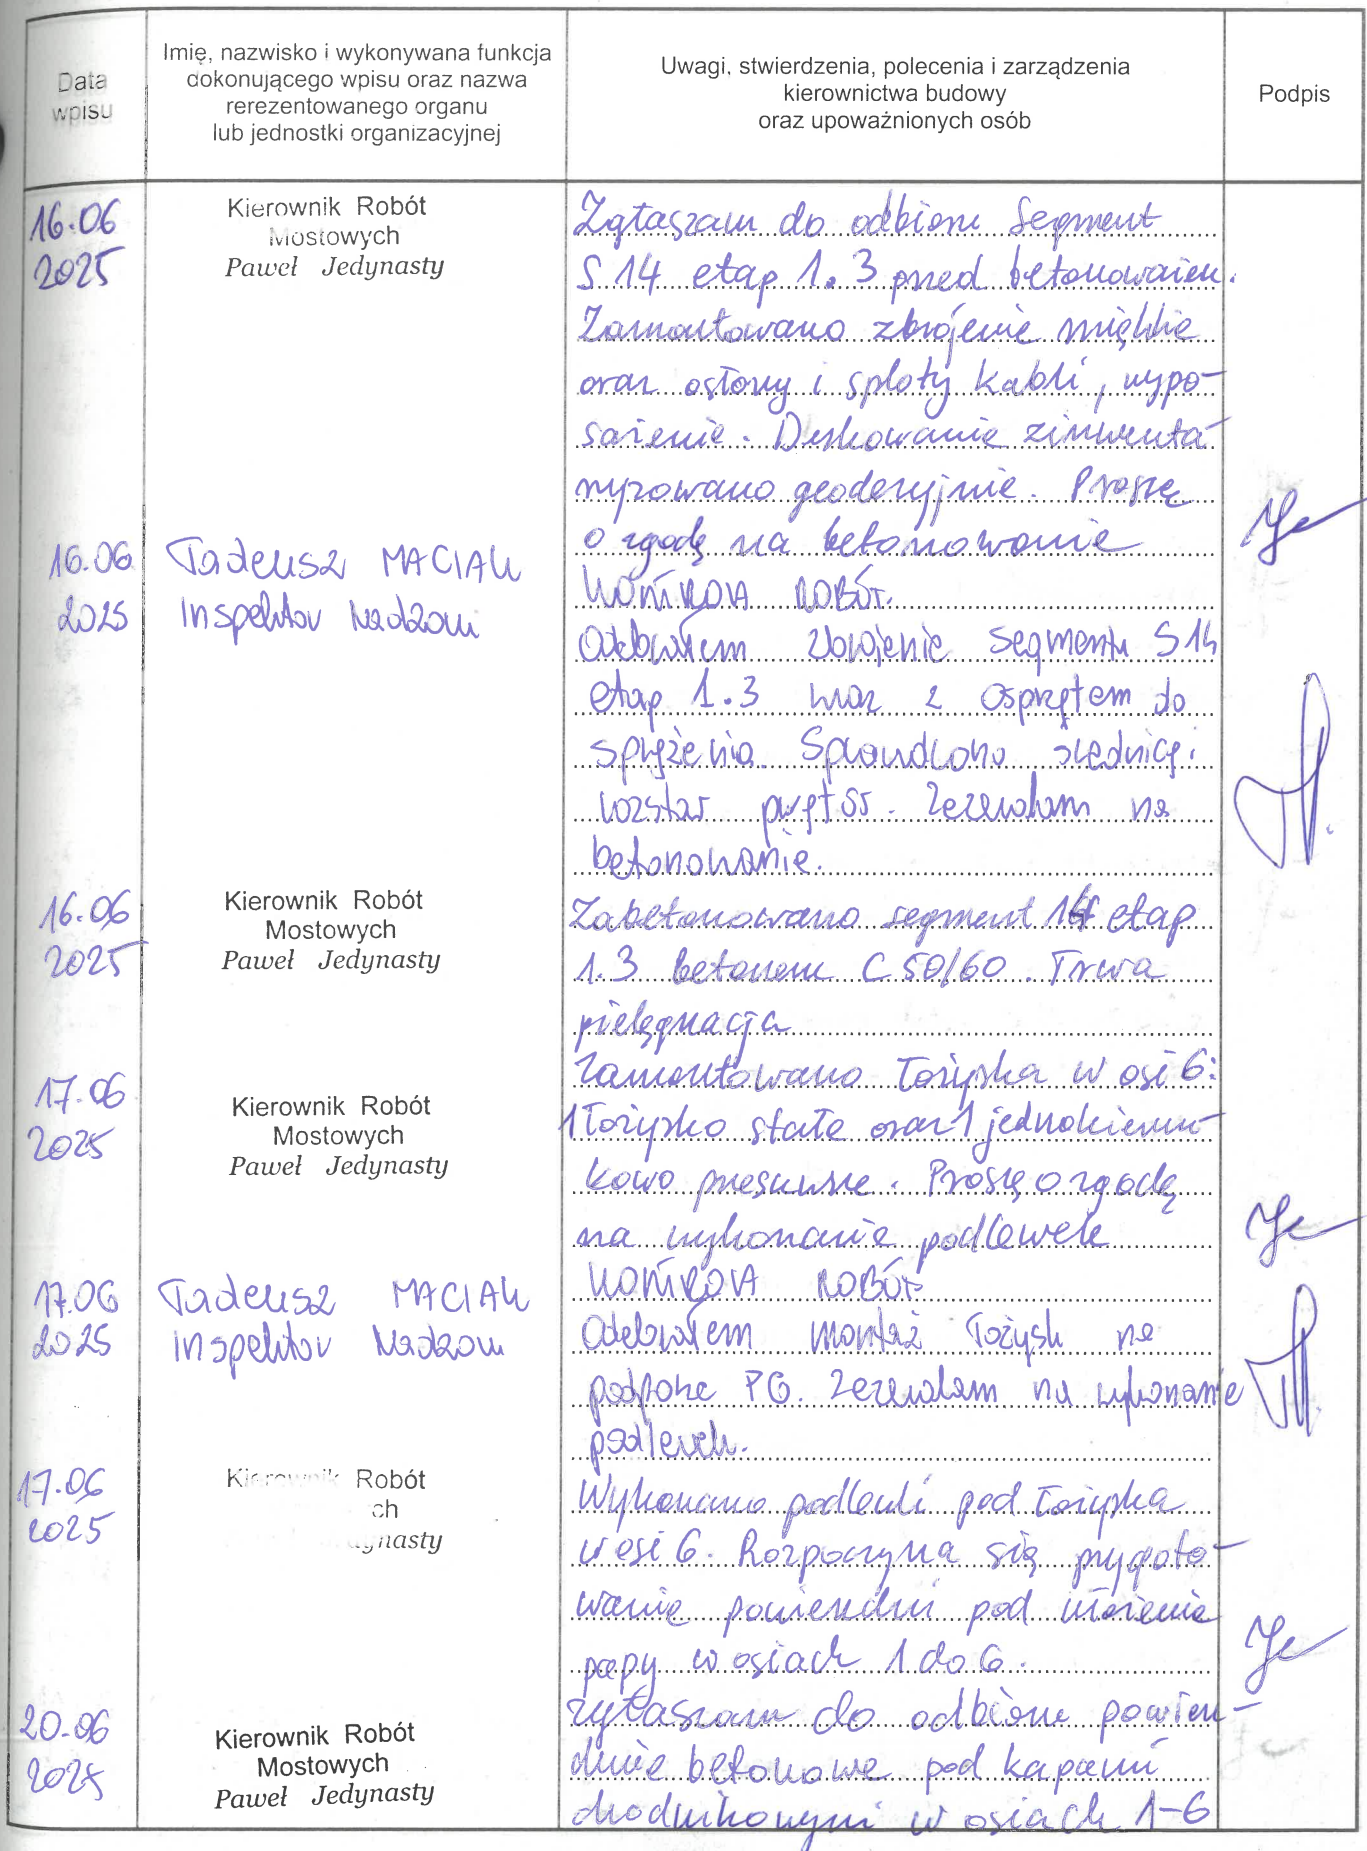 Data
wpisu
Imię, nazwisko i wykonywana funkcja
dokonującego wpisu oraz nazwa
rerezentowanego organu
lub jednostki organizacyjnej
Uwagi, stwierdzenia, polecenia i zarządzenia
kierownictwa budowy
oraz upoważnionych osób
Podpis
16.06
2025
Kierownik Robót
Mostowych
Paweł Jedynasty
Zgłaszam do odbioru Segment
S 14 etap 1.3 przed betonowaniem.
Zamontowano zbrojenie miękkie
oraz osłony i sploty kabli, wypo-
sażenie. Deskowanie zinwenta-
ryzowano geodezyjnie. Proszę
o zgodę na betonowanie
16.06
2025
Tadeusz MACIAK
Inspektor Nadzoru
KONTROLA ROBÓT.
Odebrałem zbrojenie segmentu S14
etap 1.3 wraz z osprzętem do
sprężenia. Sprawdzono średnicę i
rozstaw prętów. Zezwalam na
betonowanie.
16.06
2025
Kierownik Robót
Mostowych
Paweł Jedynasty
Zabetonowano segment 14 etap
1.3 betonem C50/60. Trwa
pielęgnacja
17.06
2025
Kierownik Robót
Mostowych
Paweł Jedynasty
Zamontowano łożyska w osi 6:
1 łożysko stałe oraz 1 jednokierun-
kowo przesuwne. Proszę o zgodę
na wykonanie podlewek
17.06
2025
Tadeusz MACIAK
Inspektor Nadzoru
KONTROLA ROBÓT
Odebrałem montaż łożysk na
podporze P6. Zezwalam na wykonanie
podlewek.
17.06
2025
Kierownik Robót
ch
ynasty
Wykonano podlewki pod łożyska
w osi 6. Rozpoczyna się przygoto-
wanie powierzchni pod ułożenie
papy w osiach 1 do 6.
20.06
2025
Kierownik Robót
Mostowych
Paweł Jedynasty
Zgłaszam do odbioru powierz-
chnie betonowe pod kapami
chodnikowymi w osiach 1-6